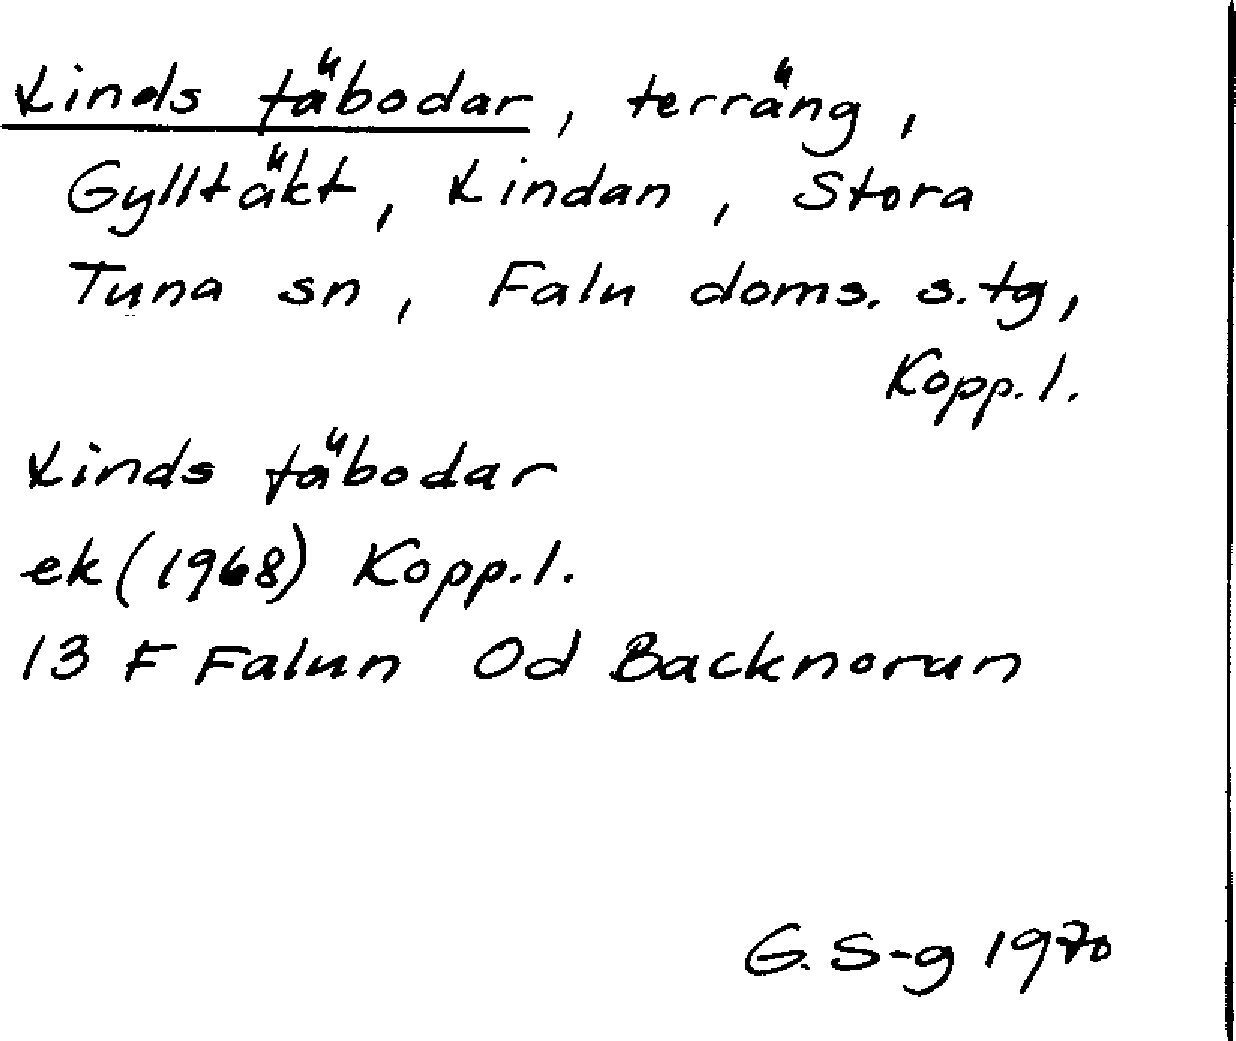 Linds fäbodar, terräng,
Gylltäkt, Lindan, Stora
Tuna sn, Falu doms. s.tg,
Kopp. l.
Linds fäbodar
ek (1968) Kopp. l.
13 F Falun 0d Backnoran
G. S-g 1970